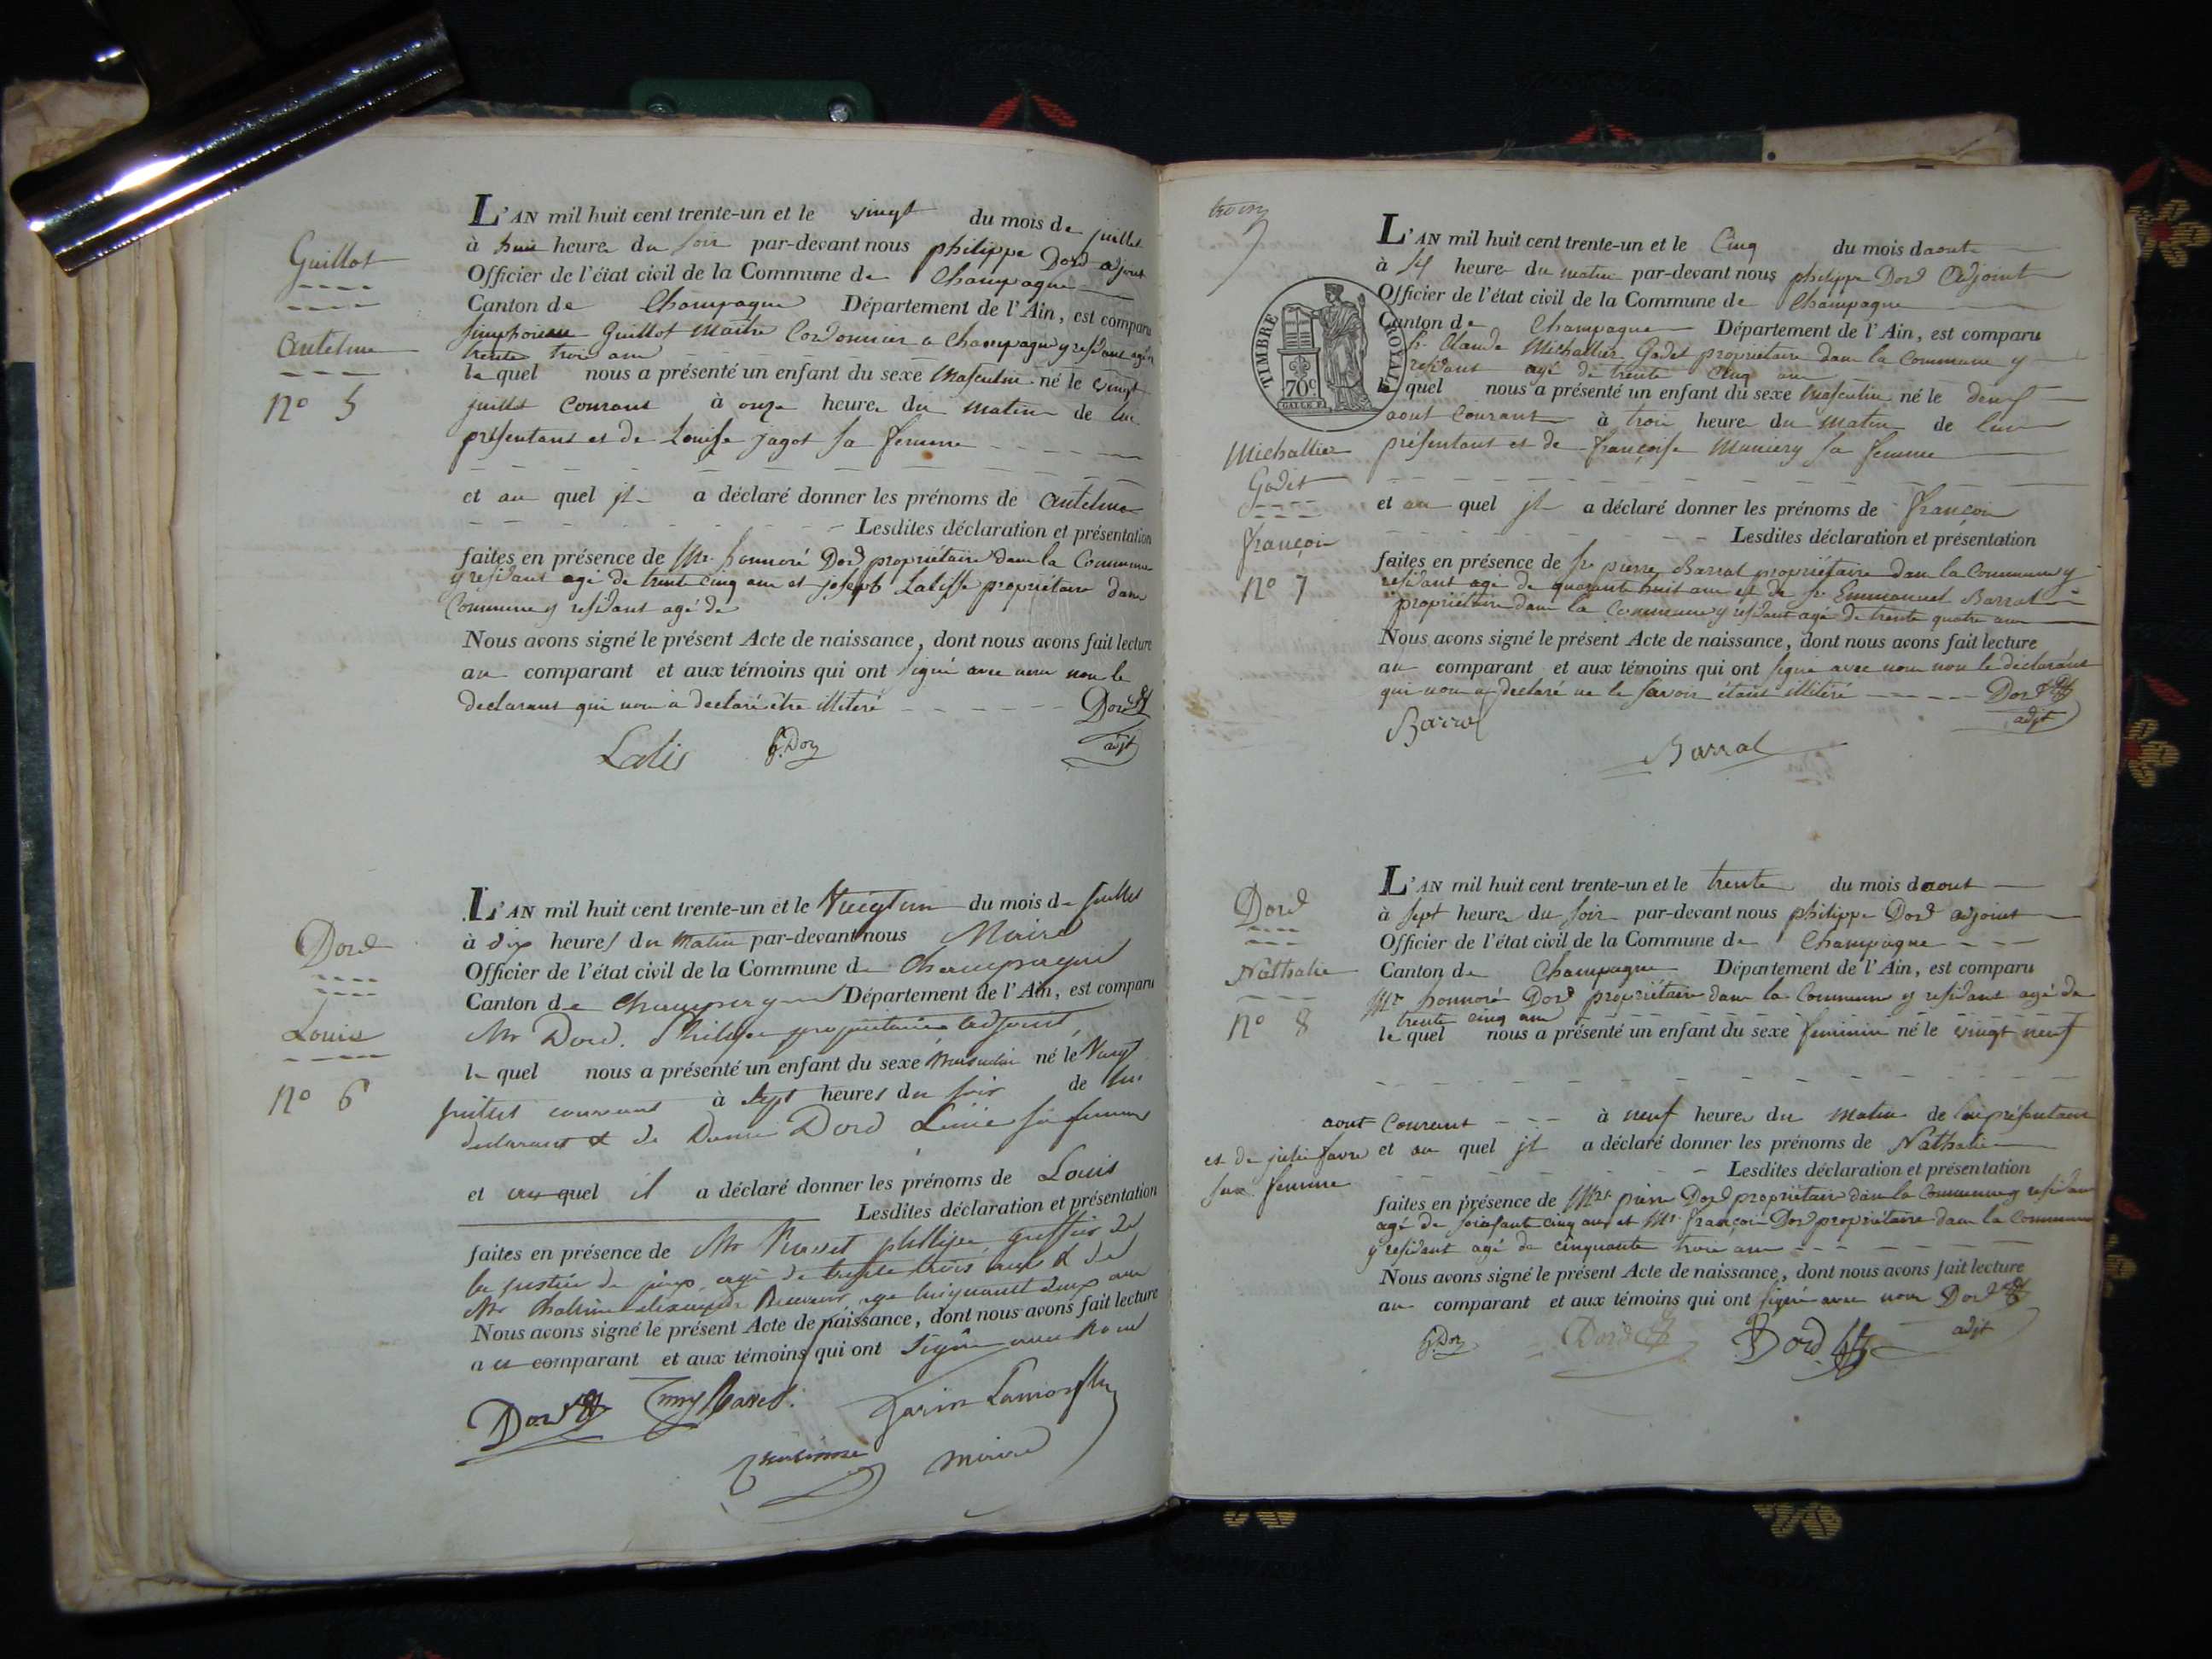 Guillot
Antelme
no 5
L'AN mil huit cent trente-un et le vingt du mois de juillet
à huit heure du soir par-devant nous philippe Dord adjoint
Officier de l'état civil de la Commune de Champagne
Canton de Champagne Département de l'Ain, est comparu
Simphorien Guillot Maitre Cordonnier a Champagne y residant agé de
trente trois ans
le quel nous a présenté un enfant du sexe Masculin né le vingt
juillet courant à onze heure du matin de lui
présentant et de Louise jagot sa femme
et au quel il a déclaré donner les prénoms de Antelme
Lesdites déclaration et présentation
faites en présence de Mr. honnoré Dord propriétaire dans la Commune
y residant agé de trente cinq ans et joseph Lalisse propriétaire dans
Commune y residant agé de
Nous avons signé le présent Acte de naissance, dont nous avons fait lecture
au comparant et aux témoins qui ont signé avec nous non le
declarant qui nous a declaré être illiteré Dord
Lalis h. Dord adjt
Dord
Louis
no 6
L'AN mil huit cent trente-un et le Vingt un du mois de juillet
à dix heures du matin par-devant nous Maire
Officier de l'état civil de la Commune de Champagne
Canton de Champagne Département de l'Ain, est comparu
Mr Dord. Philippe propriétaire adjoint,
le quel nous a présenté un enfant du sexe masculin né le Vingt
juillet courant à sept heures du soir de lui
declarant & de Dame Dord sa femme
et au quel il a déclaré donner les prénoms de Louis
Lesdites déclaration et présentation
faites en présence de Mr phillipe greffier de
la justice de paix, agé de trente trois ans & de
Mr Receveur age cinquante deux ans
Nous avons signé le présent Acte de naissance, dont nous avons fait lecture
au comparant et aux témoins qui ont signé avec nous
Dord
maire
trois
TIMBRE ROYAL
70c
Michallier
Godet
françois
no 7
L'AN mil huit cent trente-un et le Cinq du mois daout
à six heure du matin par-devant nous philippe Dord Adjoint
Officier de l'état civil de la Commune de Champagne
Canton de Champagne Département de l'Ain, est comparu
Sr. Claude Michallier Godet propriétaire dans la Commune y
residant agé de trente cinq ans
le quel nous a présenté un enfant du sexe Masculin né le deux
aout Courant à trois heure du matin de lui
présentant et de françoise Muniery sa femme
et au quel il a déclaré donner les prénoms de françois
Lesdites déclaration et présentation
faites en présence de Sr. pierre Barral propriétaire dans la Commune y
residant agé de quarante huit ans et de Sr. Emmanuel Barral
propriétaire dans la Commune y residant agé de trente quatre ans
Nous avons signé le présent Acte de naissance, dont nous avons fait lecture
au comparant et aux témoins qui ont signé avec nous non le déclarant
qui nous a declaré ne le savoir étant illiteré Dord
Barral adjt
Barral
Dord
Nathalie
no 8
L'AN mil huit cent trente-un et le trente du mois daout
à sept heure du soir par-devant nous philippe Dord adjoint
Officier de l'état civil de la Commune de Champagne
Canton de Champagne Département de l'Ain, est comparu
Mr honnoré Dord propriétaire dans la Commune y residant agé de
trente cinq ans
le quel nous a présenté un enfant du sexe feminin né le vingt neuf
aout Courant à neuf heure du matin de lui présentant
et de julie favre sa femme
et au quel il a déclaré donner les prénoms de Nathalie
Lesdites déclaration et présentation
faites en présence de Mr. pierre Dord propriétaire dans la Commune y residant
agé de soixante cinq ans et Mr. françois Dord propriétaire dans la Commune
y residant agé de cinquante trois ans
Nous avons signé le présent Acte de naissance, dont nous avons fait lecture
au comparant et aux témoins qui ont signé avec nous Dord
h. Dord Dord Dord adjt